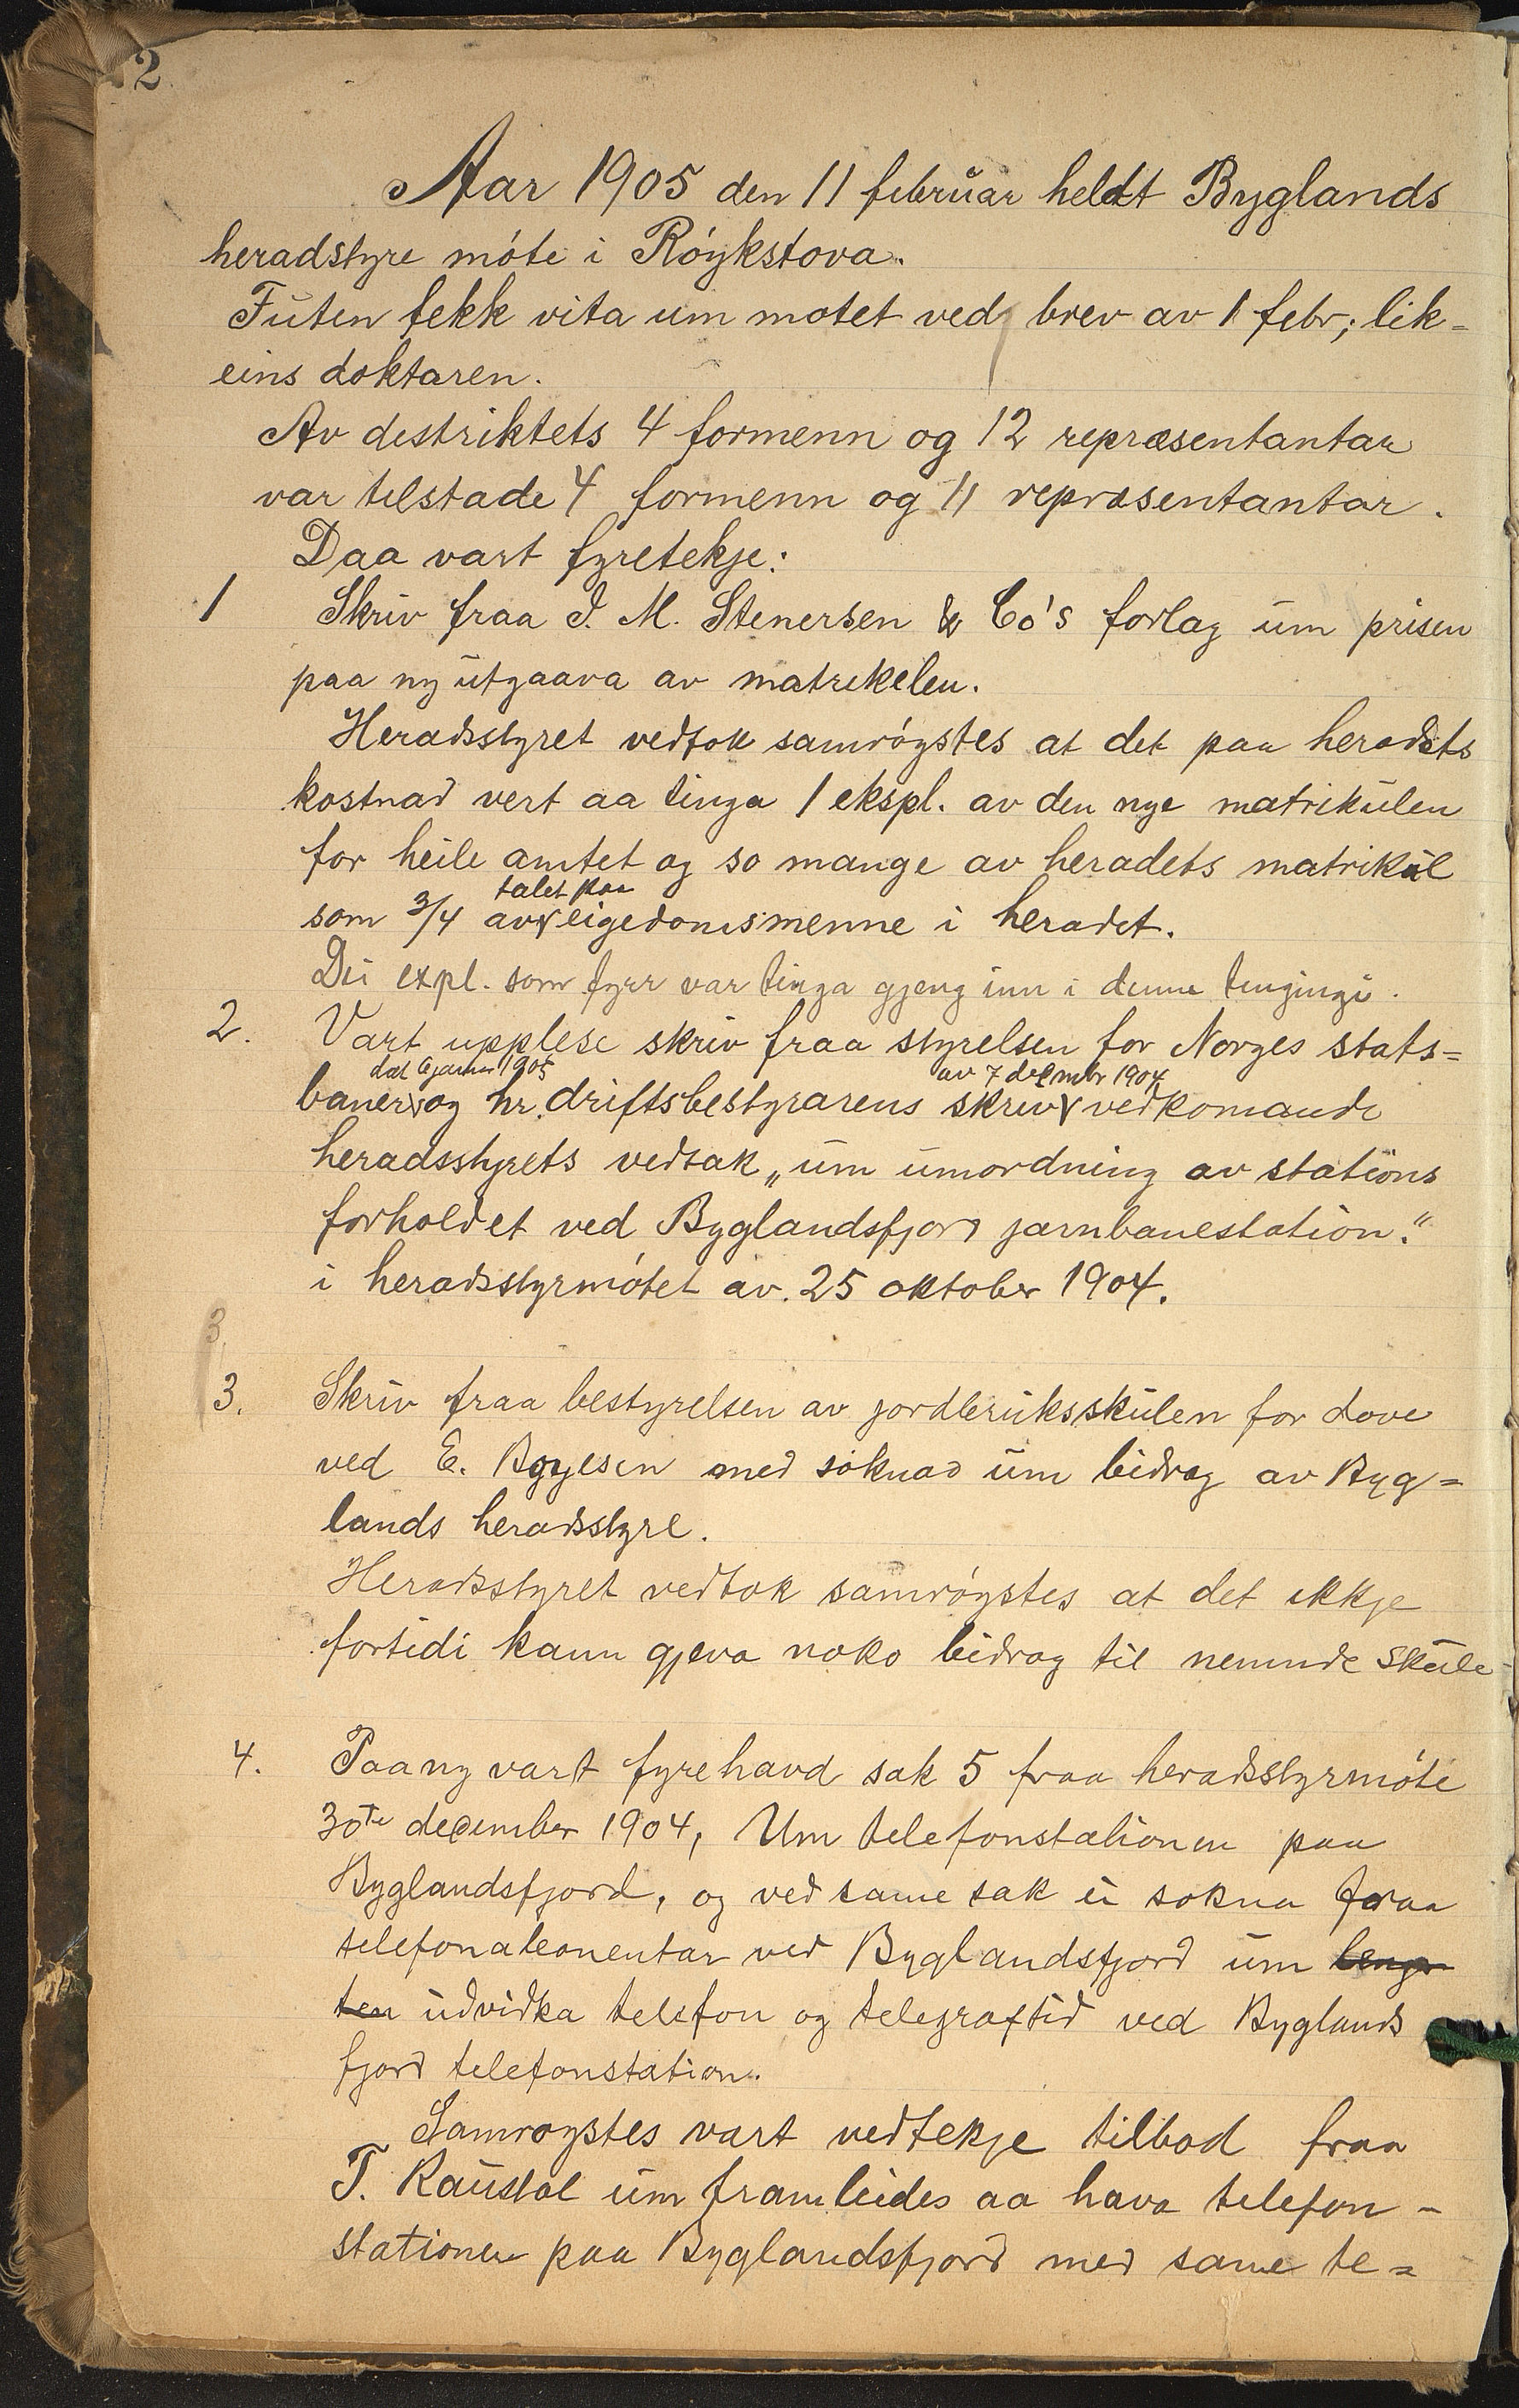 2
Aar 1905 den 11 februar heldt Byglands
heradstyre móte i Róykstova.
Futen fekk vita um motet ved brev av 1 febr; lik=
eins doktaren.
Av destriktets 4 formenn og 12 repræsentantar
var telstade 4 formenn og 11 repræsentantar.
Daa vart fyretekje:
1 Skriv fraa I. M. Stenersen & Co's forlag um prisen
paa ny utgaava av matrekelen.
Heradsstyret vedtok samróystes at det paa heradets
kostnad vert aa tinga 1 ekspl. av den nye matrikulen
for heile amtet og so mange av heradets matrikul
talet paa
som 3/4 av eigedomsmenne i heradet.
Dei expl. som fyrr var tinga gjeng inn i denne tingingi.
2. Vart upplese skriv fraa styrelsen for Norges stats=
dat 6 januar 1905 av 7 decmbr 1904
baner og hr. driftsbestyrarens skriv vedkomande
heradsstyrets vedtak „um umordning av stations
forholdet ved Byglandsfjord jarnbanestation."
i heradsstyrmótet av. 25 oktober 1904.
3.
3. Skriv fraa bestyrelsen av jordbruksskulen for dove
ved E. Boyesen med soknad um bidrag av Byg=
lands heradsstyre.
Heradsstyret vedtok samróystes at det ikkje
fortidi kann gjeva noko bidrag til nemnde skule
4. Paany vart fyrehavd sak 5 fraa heradsstyrmóte
30te december 1904, Um telefonstationen paa
Byglandsfjord, og ved same sak ei sokna fraa
telefonabonentar ved Byglandsfjord um lengr
ten udvidka telefon og telegraftid ved Byglands
fjord telefonstation.
Samroystes vart vedtekje tilbod fraa
T. Raustøl um framleides aa hava telefon-
stationen paa Byglandsfjord med same te=